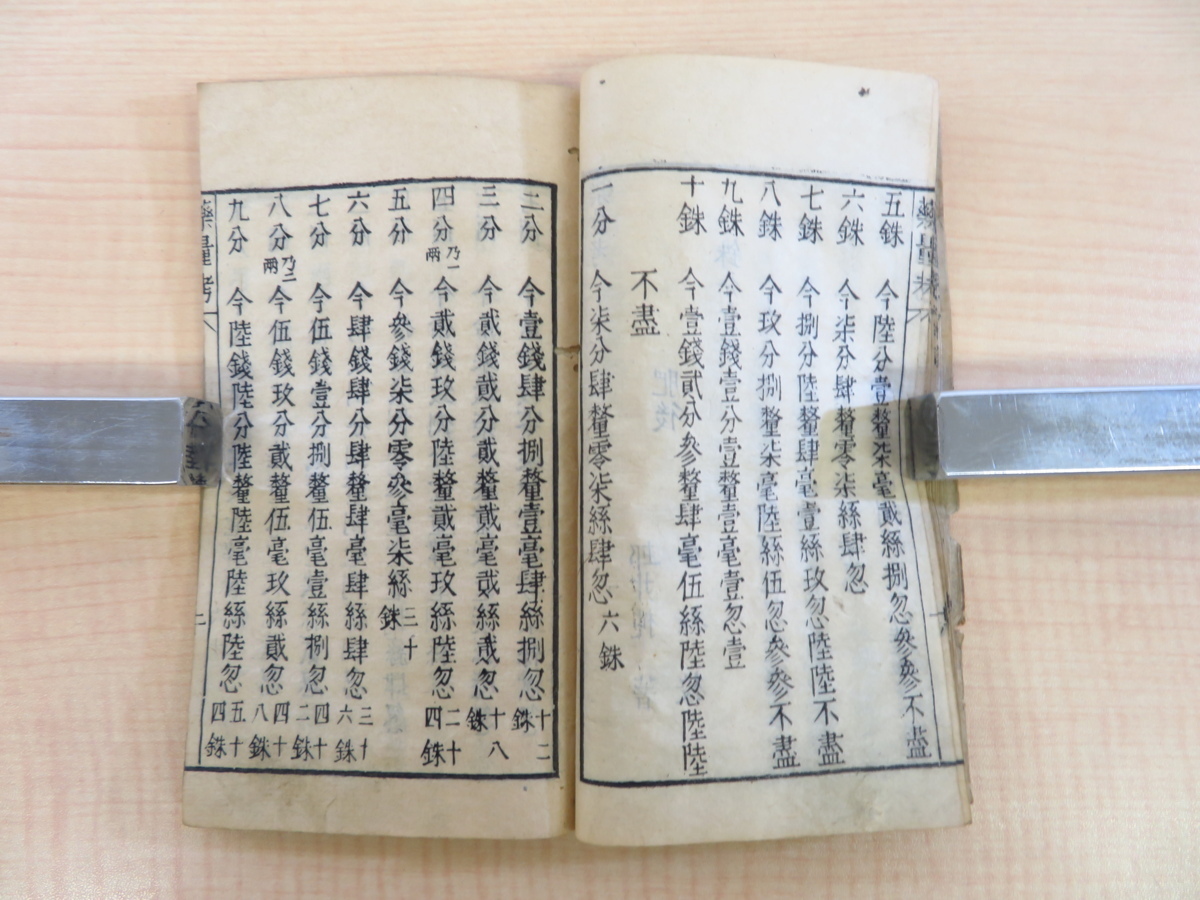 藥量考
五銖 今陸分壹釐柒毫貳絲捌忽參參不盡
六銖 今柒分肆釐零柒絲肆忽
七銖 今捌分陸釐肆毫壹絲玫忽陸陸不盡
八銖 今玫分捌釐柒毫陸絲伍忽參參不盡
九銖 今壹錢壹分壹釐壹毫壹忽壹
十銖 今壹錢貳分參釐肆毫伍絲陸忽陸陸
不盡
一分 今柒分肆釐零柒絲肆忽 六銖
二分 今壹錢肆分捌釐壹毫肆絲捌忽 十二銖
三分 今貳錢貳分貳釐貳毫貳絲貳忽 十八銖
四分 乃一兩 今貳錢玫分陸釐貳毫玫絲陸忽 二十四銖
五分 今參錢柒分零參毫柒絲 三十銖
六分 今肆錢肆分肆釐肆毫肆絲肆忽 三十六銖
七分 今伍錢壹分捌釐伍毫壹絲捌忽 四十二銖
八分 乃二兩 今伍錢玫分貳釐伍毫玫絲貳忽 四十八銖
九分 今陸錢陸分陸釐陸毫陸絲陸忽 五十四銖
藥量考
二